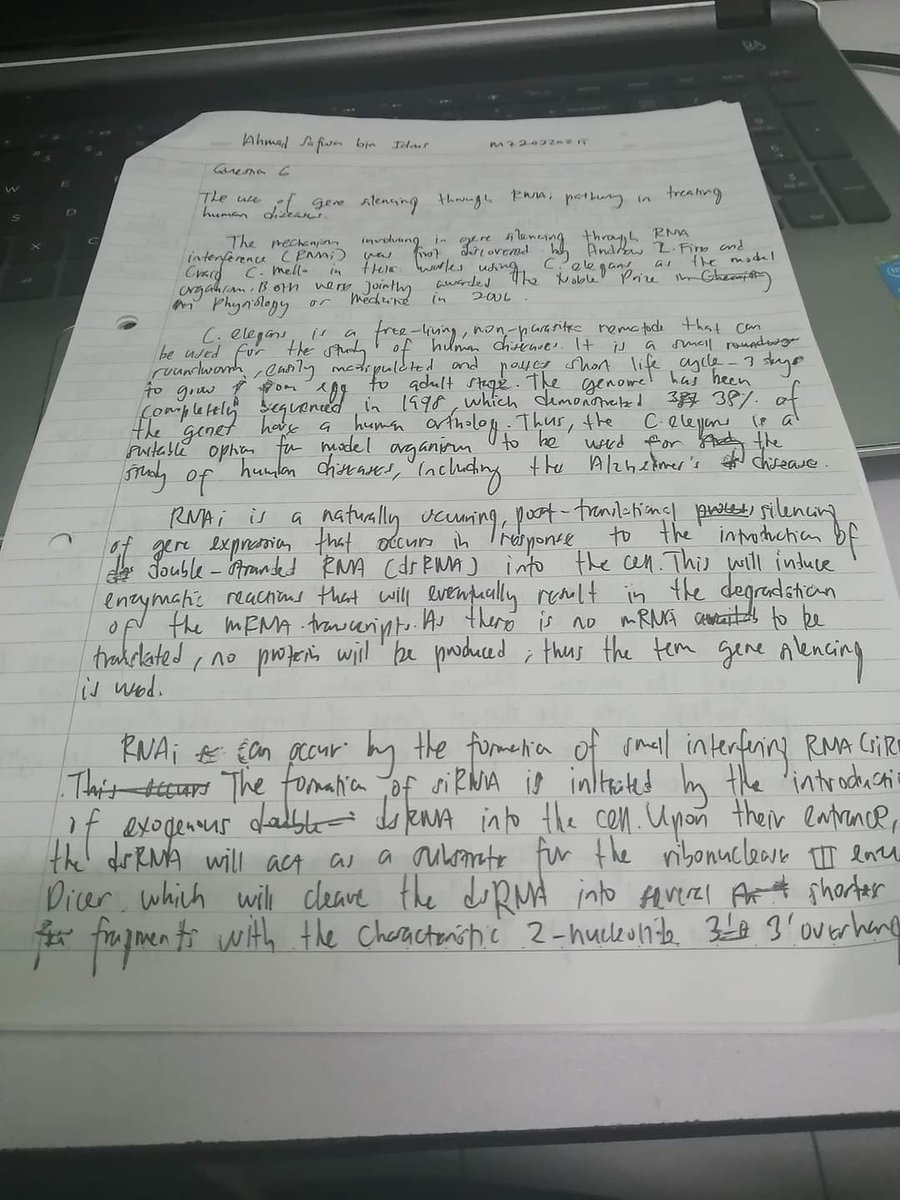 Ahmad Safwan bin Idrus
Question 6
The use of gene silencing through RNAi pathway in treating
human diseases.
The mechanism involving in gene silencing through RNA
interference (RNAi) was first discovered by Andrew Z. Fire and
Craig C. Mello in their works using C. elegans as the model
organism. Both were jointly awarded the Noble Prize in Chemistry
in Physiology or Medicine in 2006.
C. elegans is a free-living, non-parasitic nematode that can
be used for the study of human diseases. It is a small roundwor
roundworm, easily manipulated and posses short life cycle - 3 days
to grow from egg to adult stage. The genomes has been
completely sequenced in 1998, which demonstrated 38% of
the genes have a human ortholog. Thus, the C. elegans is a
suitable option for model organism to be used for study the
study of human diseases, including the Alzheimer's disease.
RNAi is a naturally occuring, post-translational process silencing
of gene expression that occurs in response to the introduction of
ds double-stranded RNA (dsRNA) into the cell. This will induce
enzymatic reactions that will eventually result in the degradation
of the mRNA transcripts. As there is no mRNA to be
translated, no protein will be produced, thus the term gene silencing
is used.
RNAi can occur by the formation of small interfering RNA (siR
This occurs The formation of siRNA is initiated by the introducti
of exogenous double- dsRNA into the cell. Upon their entrance,
the dsRNA will act as a substrate for the ribonuclease III enz
Dicer which will cleave the dsRNA into several shorter
fragments with the characteristic 2-nucleotite 3' overhang